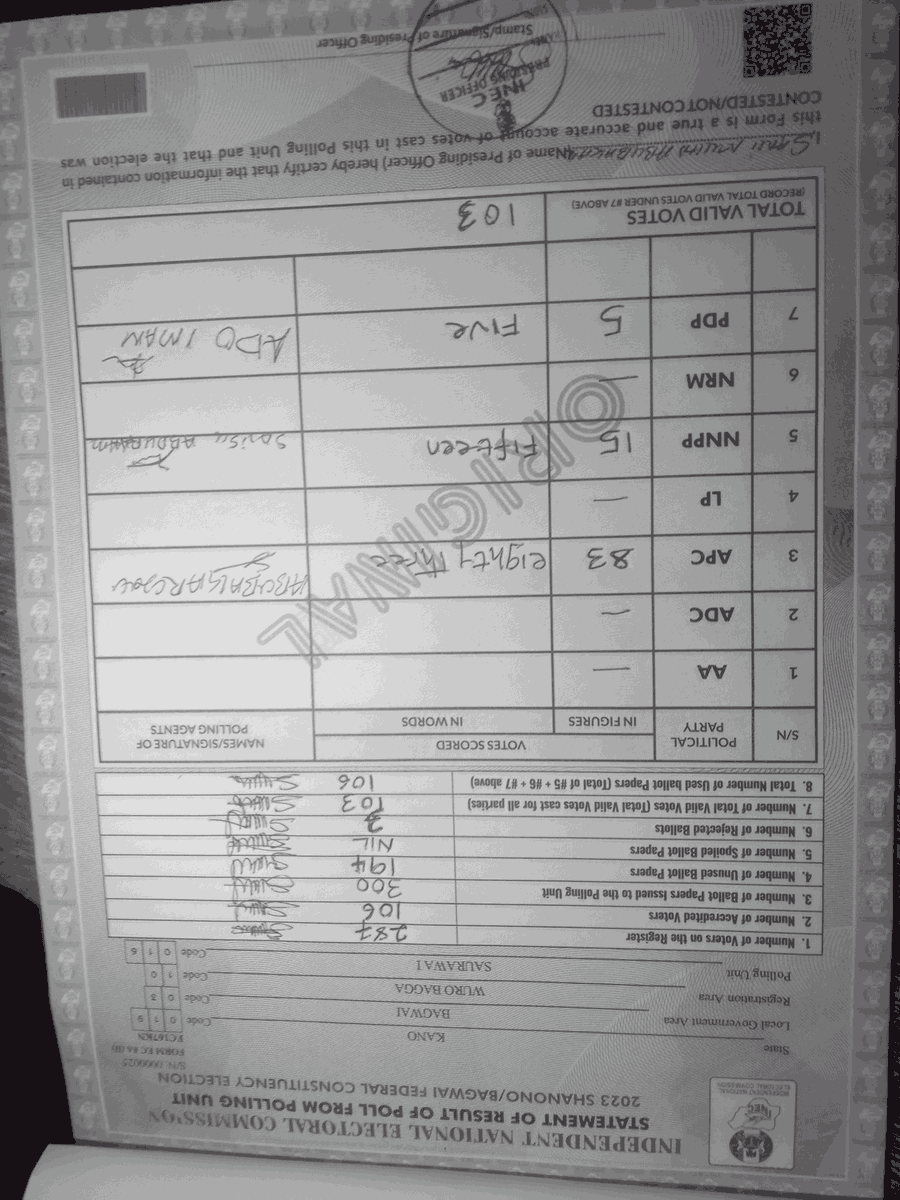 INDEPENDENT NATIONAL ELECTORAL COMMISSION
STATEMENT OF RESULT OF POLL FROM POLLING UNIT
2023 SHANONO/BAGWAI FEDERAL CONSTITUENCY ELECTION
FORM EC 8A (II)
FC167KN
State KANO
Local Government Area BAGWAI Code
Registration Area WURO BAGGA Code 1 0
Polling Unit SAURAWA I Code 0 1 6
1. Number of Voters on the Register 287
2. Number of Accredited Voters 106
3. Number of Ballot Papers Issued to the Polling Unit 300
4. Number of Unused Ballot Papers 194
5. Number of Spoiled Ballot Papers NIL
6. Number of Rejected Ballots 3
7. Number of Total Valid Votes (Total Valid Votes cast for all parties) 103
8. Total Number of Used ballot Papers (Total of #5 + #6 + #7 above) 106
S/N POLITICAL PARTY VOTES SCORED NAMES/SIGNATURE OF POLLING AGENTS
IN FIGURES IN WORDS
1 AA —
2 ADC —
3 APC 83 eighty three
4 LP —
5 NNPP 15 Fifteen
6 NRM —
7 PDP 5 Five ADO IMAN
ORIGINAL
TOTAL VALID VOTES 103
(RECORD TOTAL VALID VOTES UNDER #7 ABOVE)
I, (Name of Presiding Officer) hereby certify that the information contained in
this Form is a true and accurate account of votes cast in this Polling Unit and that the election was
CONTESTED/NOT CONTESTED
INEC
PRESIDING OFFICER
Stamp/Signature of Presiding Officer